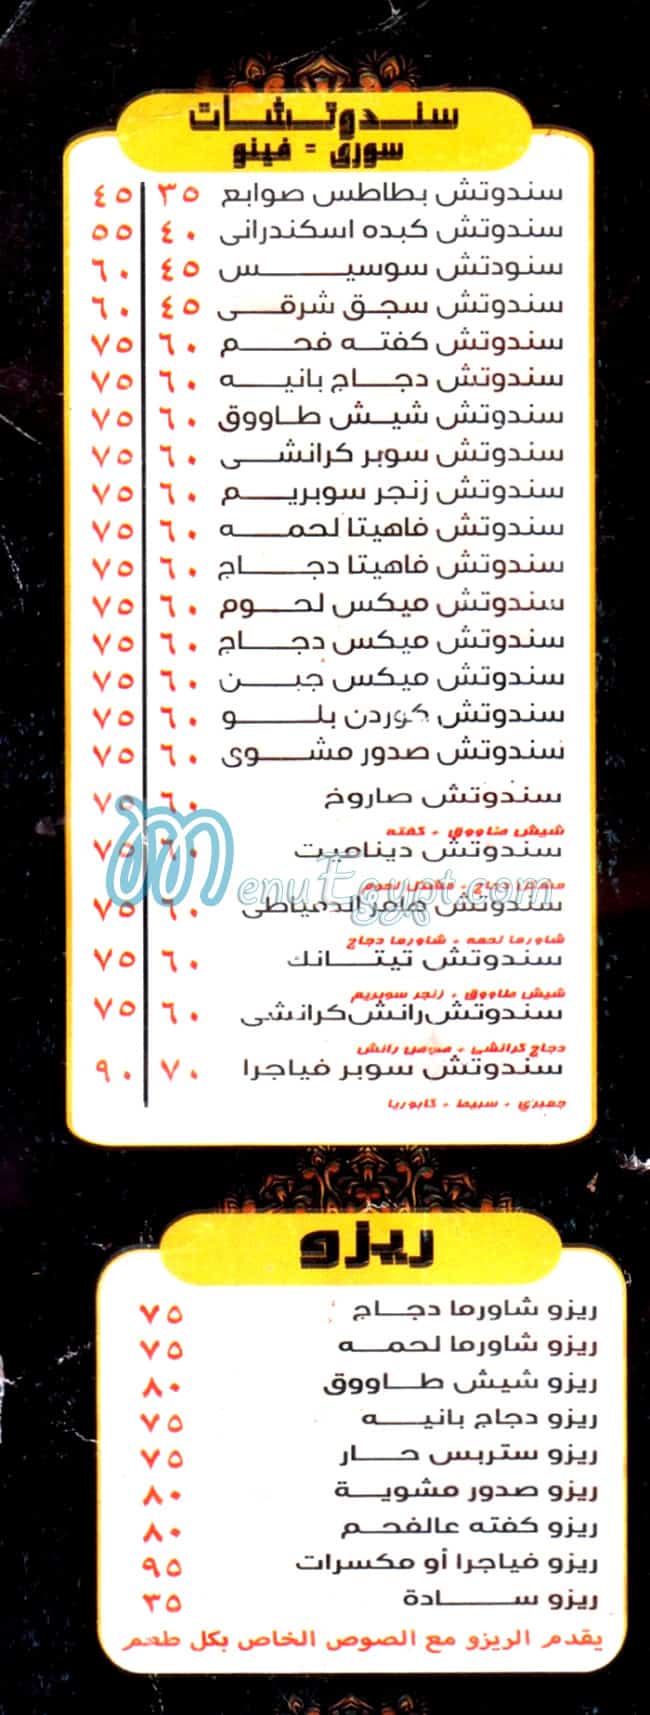 سندوتشات
سورى = فينو
سندوتش بطاطس صوابع ٣٥ ٤٥
سندوتش كبده اسكندرانى ٤٠ ٥٥
سنودتش سوسيس ٤٥ ٦٠
سندوتش سجق شرقى ٤٥ ٦٠
سندوتش كفته فحم ٦٠ ٧٥
سندوتش دجاج بانيه ٦٠ ٧٥
سندوتش شيش طاووق ٦٠ ٧٥
سندوتش سوبر كرانشى ٦٠ ٧٥
سندوتش زنجر سوبريم ٦٠ ٧٥
سندوتش فاهيتا لحمه ٦٠ ٧٥
سندوتش فاهيتا دجاج ٦٠ ٧٥
سندوتش ميكس لحوم ٦٠ ٧٥
سندوتش ميكس دجاج ٦٠ ٧٥
سندوتش ميكس جبن ٦٠ ٧٥
سندوتش كوردن بلو ٦٠ ٧٥
سندوتش صدور مشوى ٦٠ ٧٥
سندوتش صاروخ ٦٠ ٧٥
شيش طاووق + كفته
سندوتش ديناميت ٦٠ ٧٥
دجاج + مشكل لحوم
سندوتش الدمياطى ٦٠ ٧٥
شاورما لحمه + شاورما دجاج
سندوتش تيتانك ٦٠ ٧٥
شيش طاووق + زنجر سوبريم
سندوتش رانش كرانشى ٦٠ ٧٥
دجاج كرانشى + صوص رانش
سندوتش سوبر فياجرا ٧٠ ٩٠
جمبرى + سبيط + كابوريا
MenuEgypt.com
ريزو
ريزو شاورما دجاج ٧٥
ريزو شاورما لحمه ٧٥
ريزو شيش طاووق ٨٠
ريزو دجاج بانيه ٧٥
ريزو ستربس حار ٧٥
ريزو صدور مشوية ٨٠
ريزو كفته عالفحم ٨٠
ريزو فياجرا أو مكسرات ٩٥
ريزو سادة ٣٥
يقدم الريزو مع الصوص الخاص بكل طعم